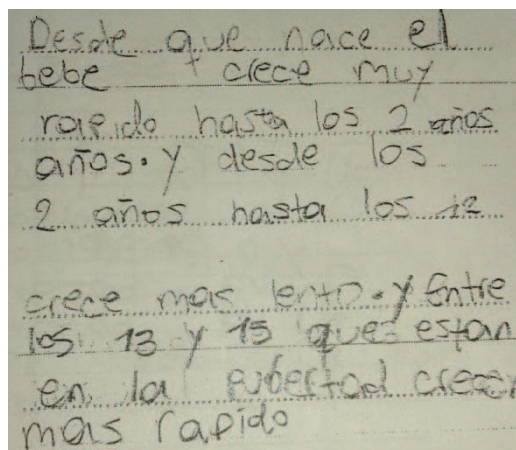 Desde que nace el
bebe crece muy
rapido hasta los 2 años
años. y desde los
2 años hasta los 12
crece mas lento. y Entre
los 13 y 15 que estan
en la pubertad crecen
mas rapido